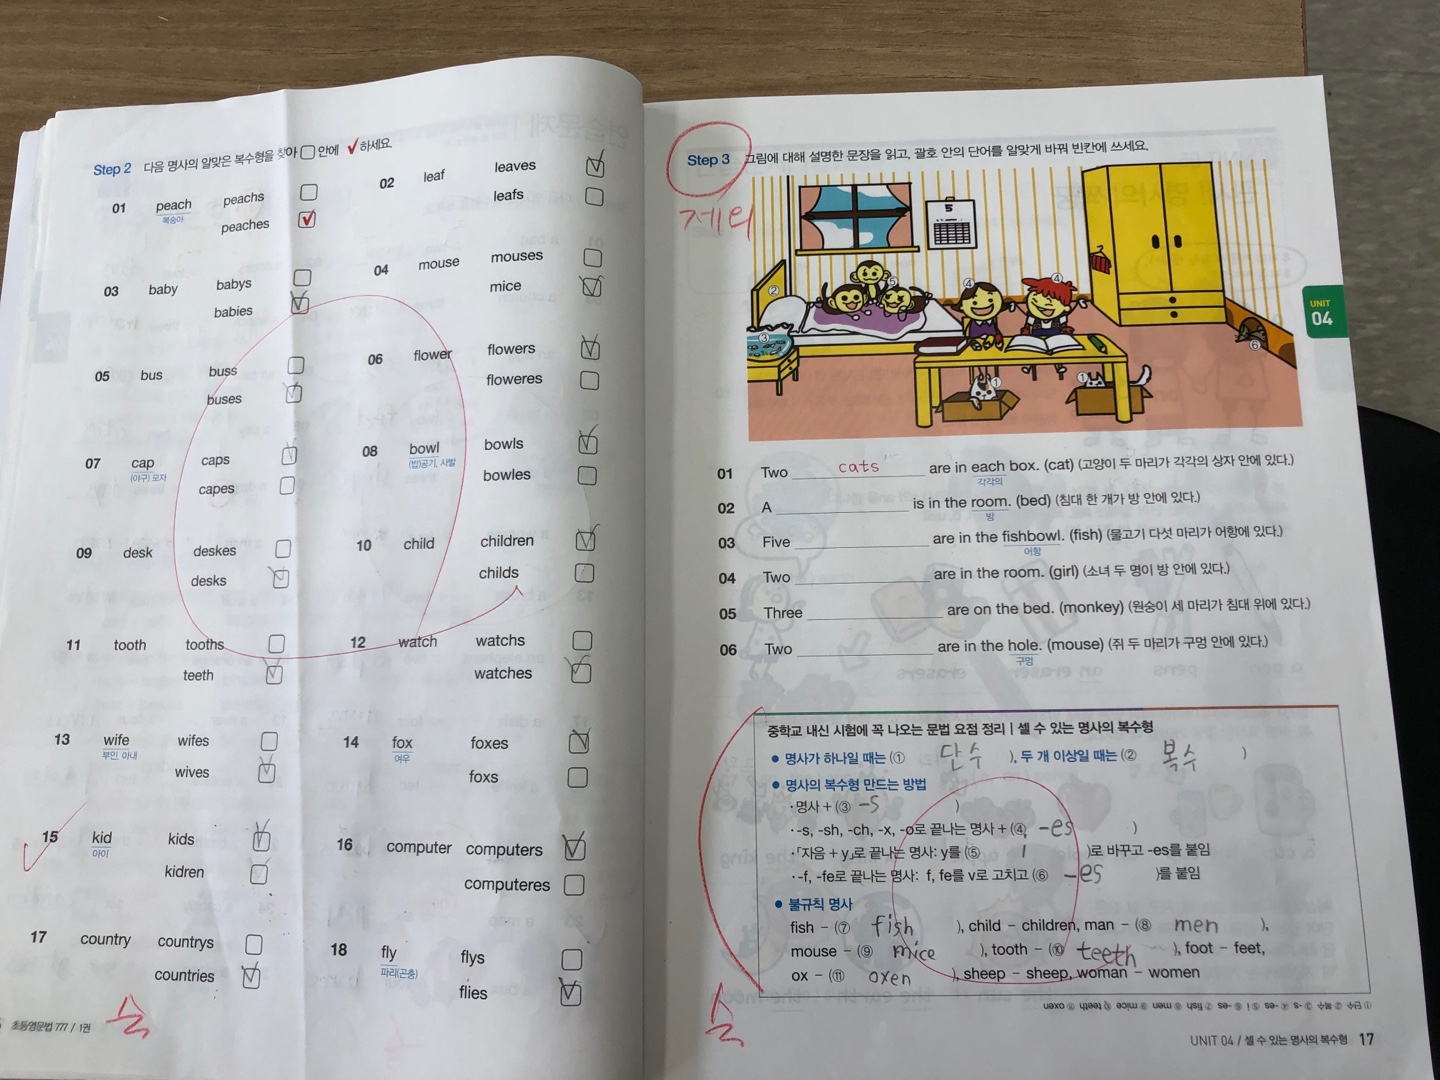 Step 2 다음 명사의 알맞은 복수형을 찾아 □ 안에 ✓하세요.
01 peach peachs
복숭아 peaches
02 leaf leaves
leafs
03 baby babys
babies
04 mouse mouses
mice
05 bus buss
buses
06 flower flowers
floweres
07 cap caps
(야구) 모자 capes
08 bowl bowls
(밥)공기, 사발 bowles
09 desk deskes
desks
10 child children
childs
11 tooth tooths
teeth
12 watch watchs
watches
13 wife wifes
부인, 아내 wives
14 fox foxes
여우 foxs
15 kid kids
아이 kidren
16 computer computers
computeres
17 country countrys
countries
18 fly flys
파리(곤충) flies
초등영문법 777 / 1권
Step 3 그림에 대해 설명한 문장을 읽고, 괄호 안의 단어를 알맞게 바꿔 빈칸에 쓰세요.
5
② ⑤ ④ ④ ③ ⑥ ① ①
UNIT
04
01 Two cats are in each box. (cat) (고양이 두 마리가 각각의 상자 안에 있다.)
각각의
02 A is in the room. (bed) (침대 한 개가 방 안에 있다.)
방
03 Five are in the fishbowl. (fish) (물고기 다섯 마리가 어항에 있다.)
어항
04 Two are in the room. (girl) (소녀 두 명이 방 안에 있다.)
05 Three are on the bed. (monkey) (원숭이 세 마리가 침대 위에 있다.)
06 Two are in the hole. (mouse) (쥐 두 마리가 구멍 안에 있다.)
구멍
중학교 내신 시험에 꼭 나오는 문법 요점 정리 | 셀 수 있는 명사의 복수형
● 명사가 하나일 때는 (① 단수 ), 두 개 이상일 때는 (② 복수 )
● 명사의 복수형 만드는 방법
·명사 + (③ -s )
·-s, -sh, -ch, -x, -o로 끝나는 명사 + (④ -es )
·「자음 + y」로 끝나는 명사: y를 (⑤ i )로 바꾸고 -es를 붙임
·-f, -fe로 끝나는 명사: f, fe를 v로 고치고 (⑥ -es )를 붙임
● 불규칙 명사
fish – (⑦ fish ), child – children, man – (⑧ men ),
mouse – (⑨ mice ), tooth – (⑩ teeth ), foot – feet,
ox – (⑪ oxen ), sheep – sheep, woman – women
① 단수 ② 복수 ③ -s ④ -es ⑤ i ⑥ -es ⑦ fish ⑧ men ⑨ mice ⑩ teeth ⑪ oxen
UNIT 04 / 셀 수 있는 명사의 복수형 17